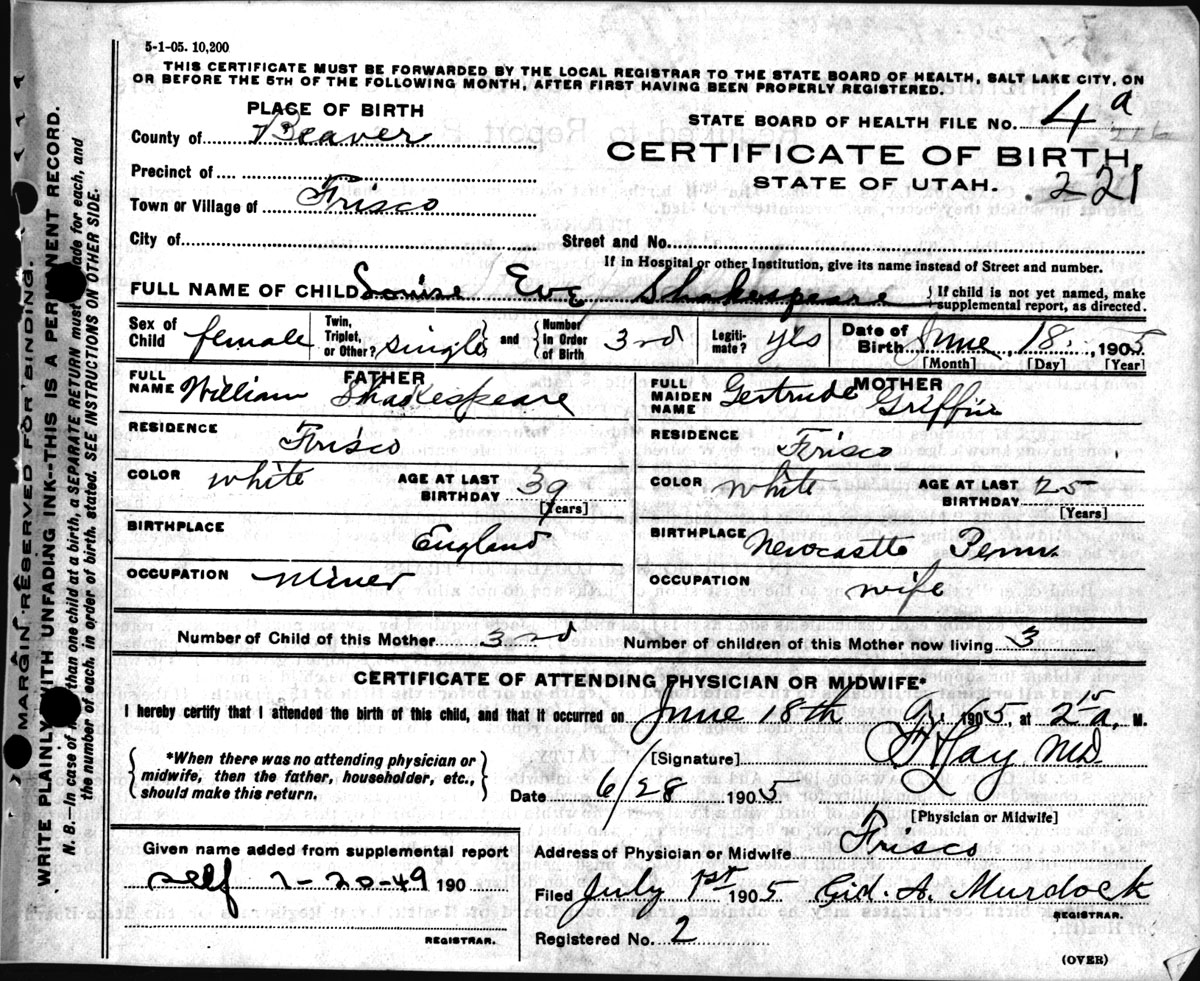 5-1-05. 10,200
THIS CERTIFICATE MUST BE FORWARDED BY THE LOCAL REGISTRAR TO THE STATE BOARD OF HEALTH, SALT LAKE CITY, ON
OR BEFORE THE 5TH OF THE FOLLOWING MONTH, AFTER FIRST HAVING BEEN PROPERLY REGISTERED.
PLACE OF BIRTH
STATE BOARD OF HEALTH FILE NO. 4 a
County of Beaver
CERTIFICATE OF BIRTH,
Precinct of
STATE OF UTAH. 221
Town or Village of Frisco
City of Street and No.
If in Hospital or other Institution, give its name instead of Street and number.
FULL NAME OF CHILD Louise Eva Shakespeare { If child is not yet named, make supplemental report, as directed.
Sex of Child female Twin, Triplet, or Other? single } and { Number in Order of Birth 3rd Legiti- mate? yes Date of Birth June 18. 1905
[Month] [Day] [Year]
FATHER MOTHER
FULL NAME William Shakespeare FULL MAIDEN NAME Gertrude Griffin
RESIDENCE Frisco RESIDENCE Frisco
COLOR white AGE AT LAST BIRTHDAY 39 [Years] COLOR white AGE AT LAST BIRTHDAY 25 [Years]
BIRTHPLACE England BIRTHPLACE Newcastle Penn.
OCCUPATION Miner OCCUPATION wife
Number of Child of this Mother 3rd Number of children of this Mother now living 3
CERTIFICATE OF ATTENDING PHYSICIAN OR MIDWIFE*
I hereby certify that I attended the birth of this child, and that it occurred on June 18th 1905, at 2 15 a. M.
{ *When there was no attending physician or midwife, then the father, householder, etc., should make this return. }
[Signature] Lay MD.
Date 6/28 1905
[Physician or Midwife]
Address of Physician or Midwife Frisco
Given name added from supplemental report
self 7-20-49 190
Filed July 1st 1905 Gid. A. Murdock
REGISTRAR.
REGISTRAR.
Registered No. 2
(OVER)
MARGIN RESERVED FOR BINDING.
WRITE PLAINLY WITH UNFADING INK--THIS IS A PERMANENT RECORD.
N. B.--In case of than one child at a birth, a SEPARATE RETURN must made for each, and
the number of each, in order of birth, stated. SEE INSTRUCTIONS ON OTHER SIDE.